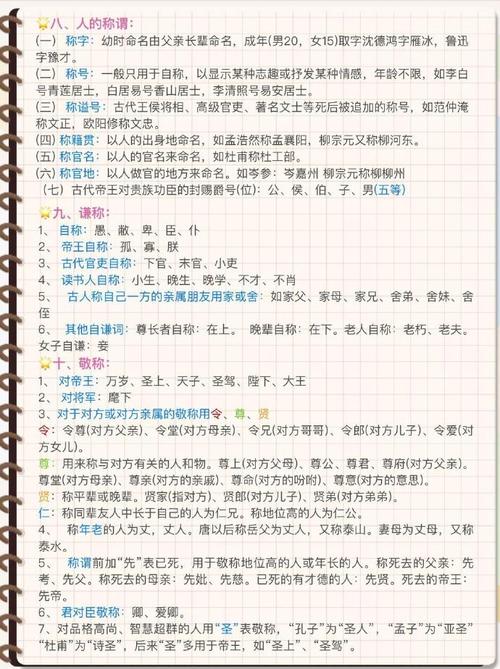 八、人的称谓:
(一) 称字：幼时命名由父亲长辈命名，成年(男20，女15)取字沈德鸿字雁冰，鲁迅
字豫才。
(二) 称号：一般只用于自称，以显示某种志趣或抒发某种情感，年龄不限，如李白
号青莲居士，白居易号香山居士，李清照号易安居士。
(三) 称谥号：古代王侯将相、高级官吏、著名文士等死后被追加的称号，如范仲淹
称文正，欧阳修称文忠。
(四) 称籍贯：以人的出身地命名，如孟浩然称孟襄阳，柳宗元又称柳河东。
(五) 称官名：以人的官名来命名，如杜甫称杜工部。
(六) 称官地：以人做官的地方来命名。如岑参：岑嘉州 柳宗元称柳柳州
（七）古代帝王对贵族功臣的封赐爵号(位)：公、侯、伯、子、男(五等)
九、谦称:
1、 自称：愚、敝、卑、臣、仆
2、 帝王自称：孤、寡、朕
3、 古代官吏自称：下官、末官、小吏
4、 读书人自称：小生、晚生、晚学、不才、不肖
5、 古人称自己一方的亲属朋友用家或舍：如家父、家母、家兄、舍弟、舍妹、舍
侄
6、 其他自谦词：尊长者自称：在上。 晚辈自称：在下。老人自称：老朽、老夫。
女子自谦：妾
十、敬称:
1、 对帝王：万岁、圣上、天子、圣驾、陛下、大王
2、 对将军：麾下
3、对于对方或对方亲属的敬称用令、尊、贤
令：令尊(对方父亲)、令堂(对方母亲)、令兄(对方哥哥)、令郎(对方儿子)、令爱(对
方女儿)。
尊：用来称与对方有关的人和物。尊上(对方父母)、尊公、尊君、尊府(对方父亲)、
尊堂(对方母亲)、尊亲(对方的亲戚)、尊命(对方的吩咐)、尊意(对方的意思)。
贤：称平辈或晚辈。贤家(指对方)、贤郎(对方儿子)、贤弟(对方弟弟)。
仁：称同辈友人中长于自己的人为仁兄。称地位高的人为仁公。
4、 称年老的人为丈，丈人。唐以后称岳父为丈人，又称泰山。妻母为丈母，又称
泰水。
5、 称谓前加“先”表已死，用于敬称地位高的人或年长的人。称死去的父亲：先
考、先父。称死去的母亲：先妣、先慈。已死的有才德的人：先贤。死去的帝王：
先帝。
6、 君对臣敬称：卿、爱卿。
7、对品格高尚、智慧超群的人用“圣”表敬称，“孔子”为“圣人”，“孟子”为“亚圣”
“杜甫”为“诗圣”，后来“圣”多用于帝王，如“圣上”、“圣驾”。